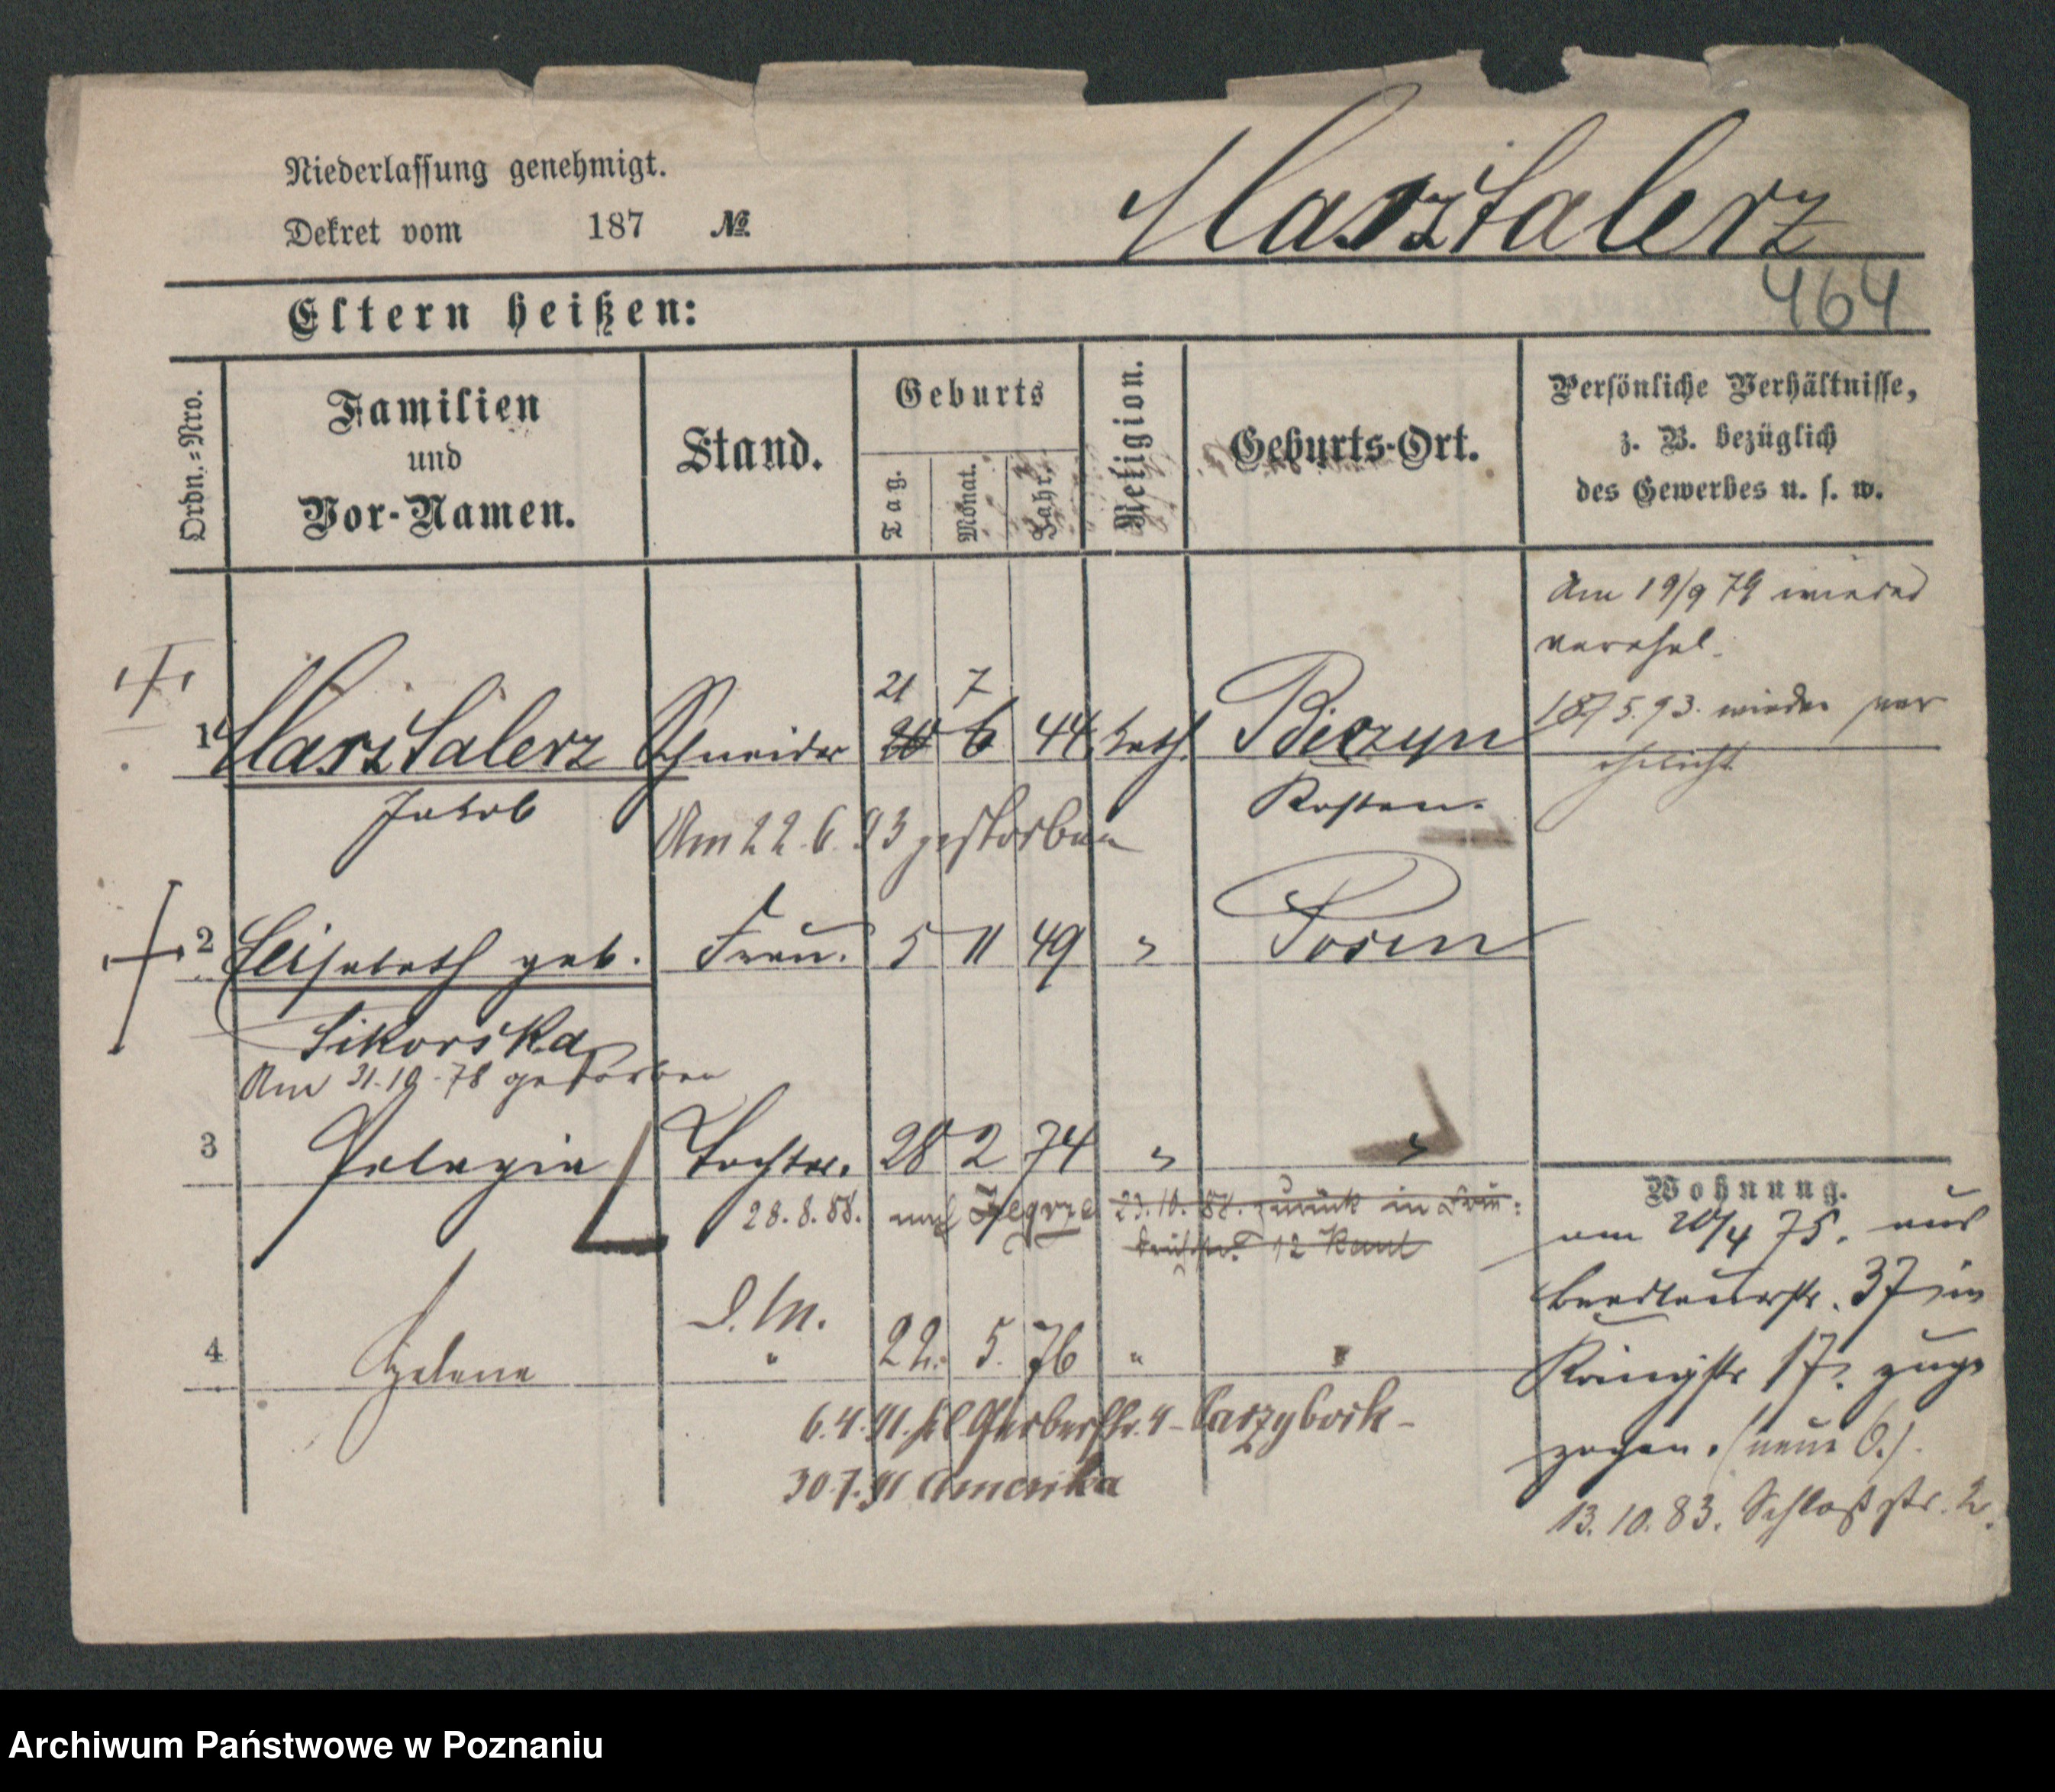 Niederlassung genehmigt.
Dekret vom 187 №
Marsztalerz
464
Eltern heißen:
Ordn.-Nro.
Familien
und
Vor-Namen.
Stand.
Geburts
Tag.
Monat.
Jahr.
Religion.
Geburts-Ort.
Persönliche Verhältnisse,
z. B. bezüglich
des Gewerbes u. s. w.
Am 19/9 79 wieder
verehel.
18/5.93. wieder ver
ehelicht
21 7
1 Marsztalerz Schneider 20 6 44 kath. Bieczyn
Jakob
Kosten.
Am 22.6.93 gestorben
2 Elisabeth geb. Frau. 5 11 49 " Posen
Sikorska
Am 31.10.78 gestorben
3 Pelagia Tochter. 28 2 74 " "
28.8.88. nach Zegrze 23.10.88. zurück in
12
Wohnung.
am 20/4 75. aus
37 in
Königstr 17. zuge
zogen. (neue 6.)
13.10.83. Schloßstr. 2.
D. M.
4 Helene " 22. 5. 76 " "
6.4.91. kl Gerberstr. 4
30.7.91 Amerika
Archiwum Państwowe w Poznaniu